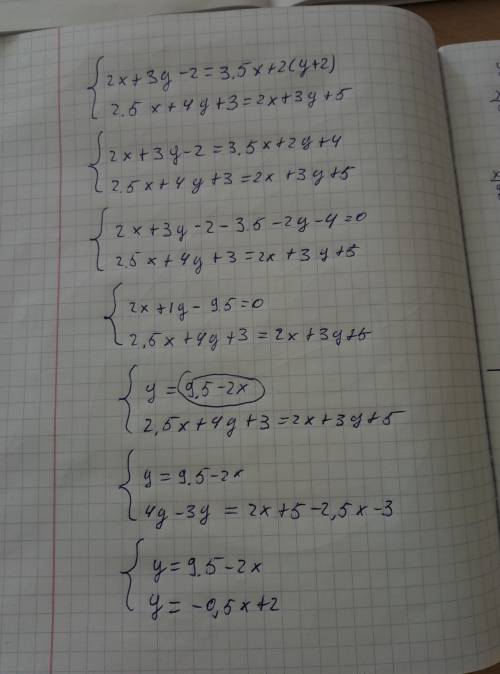 2x+3y-2=3,5x+2(y+2)
2.5x+4y+3=2x+3y+5
2x+3y-2=3,5x+2y+4
2.5x+4y+3=2x+3y+5
2x+3y-2-3.5-2y-4=0
2.5x+4y+3=2x+3y+5
2x+1y-9.5=0
2,5x+4y+3=2x+3y+5
y=9,5-2x
2,5x+4y+3=2x+3y+5
y=9.5-2x
4y-3y=2x+5-2,5x-3
y=9.5-2x
y=-0,5x+2